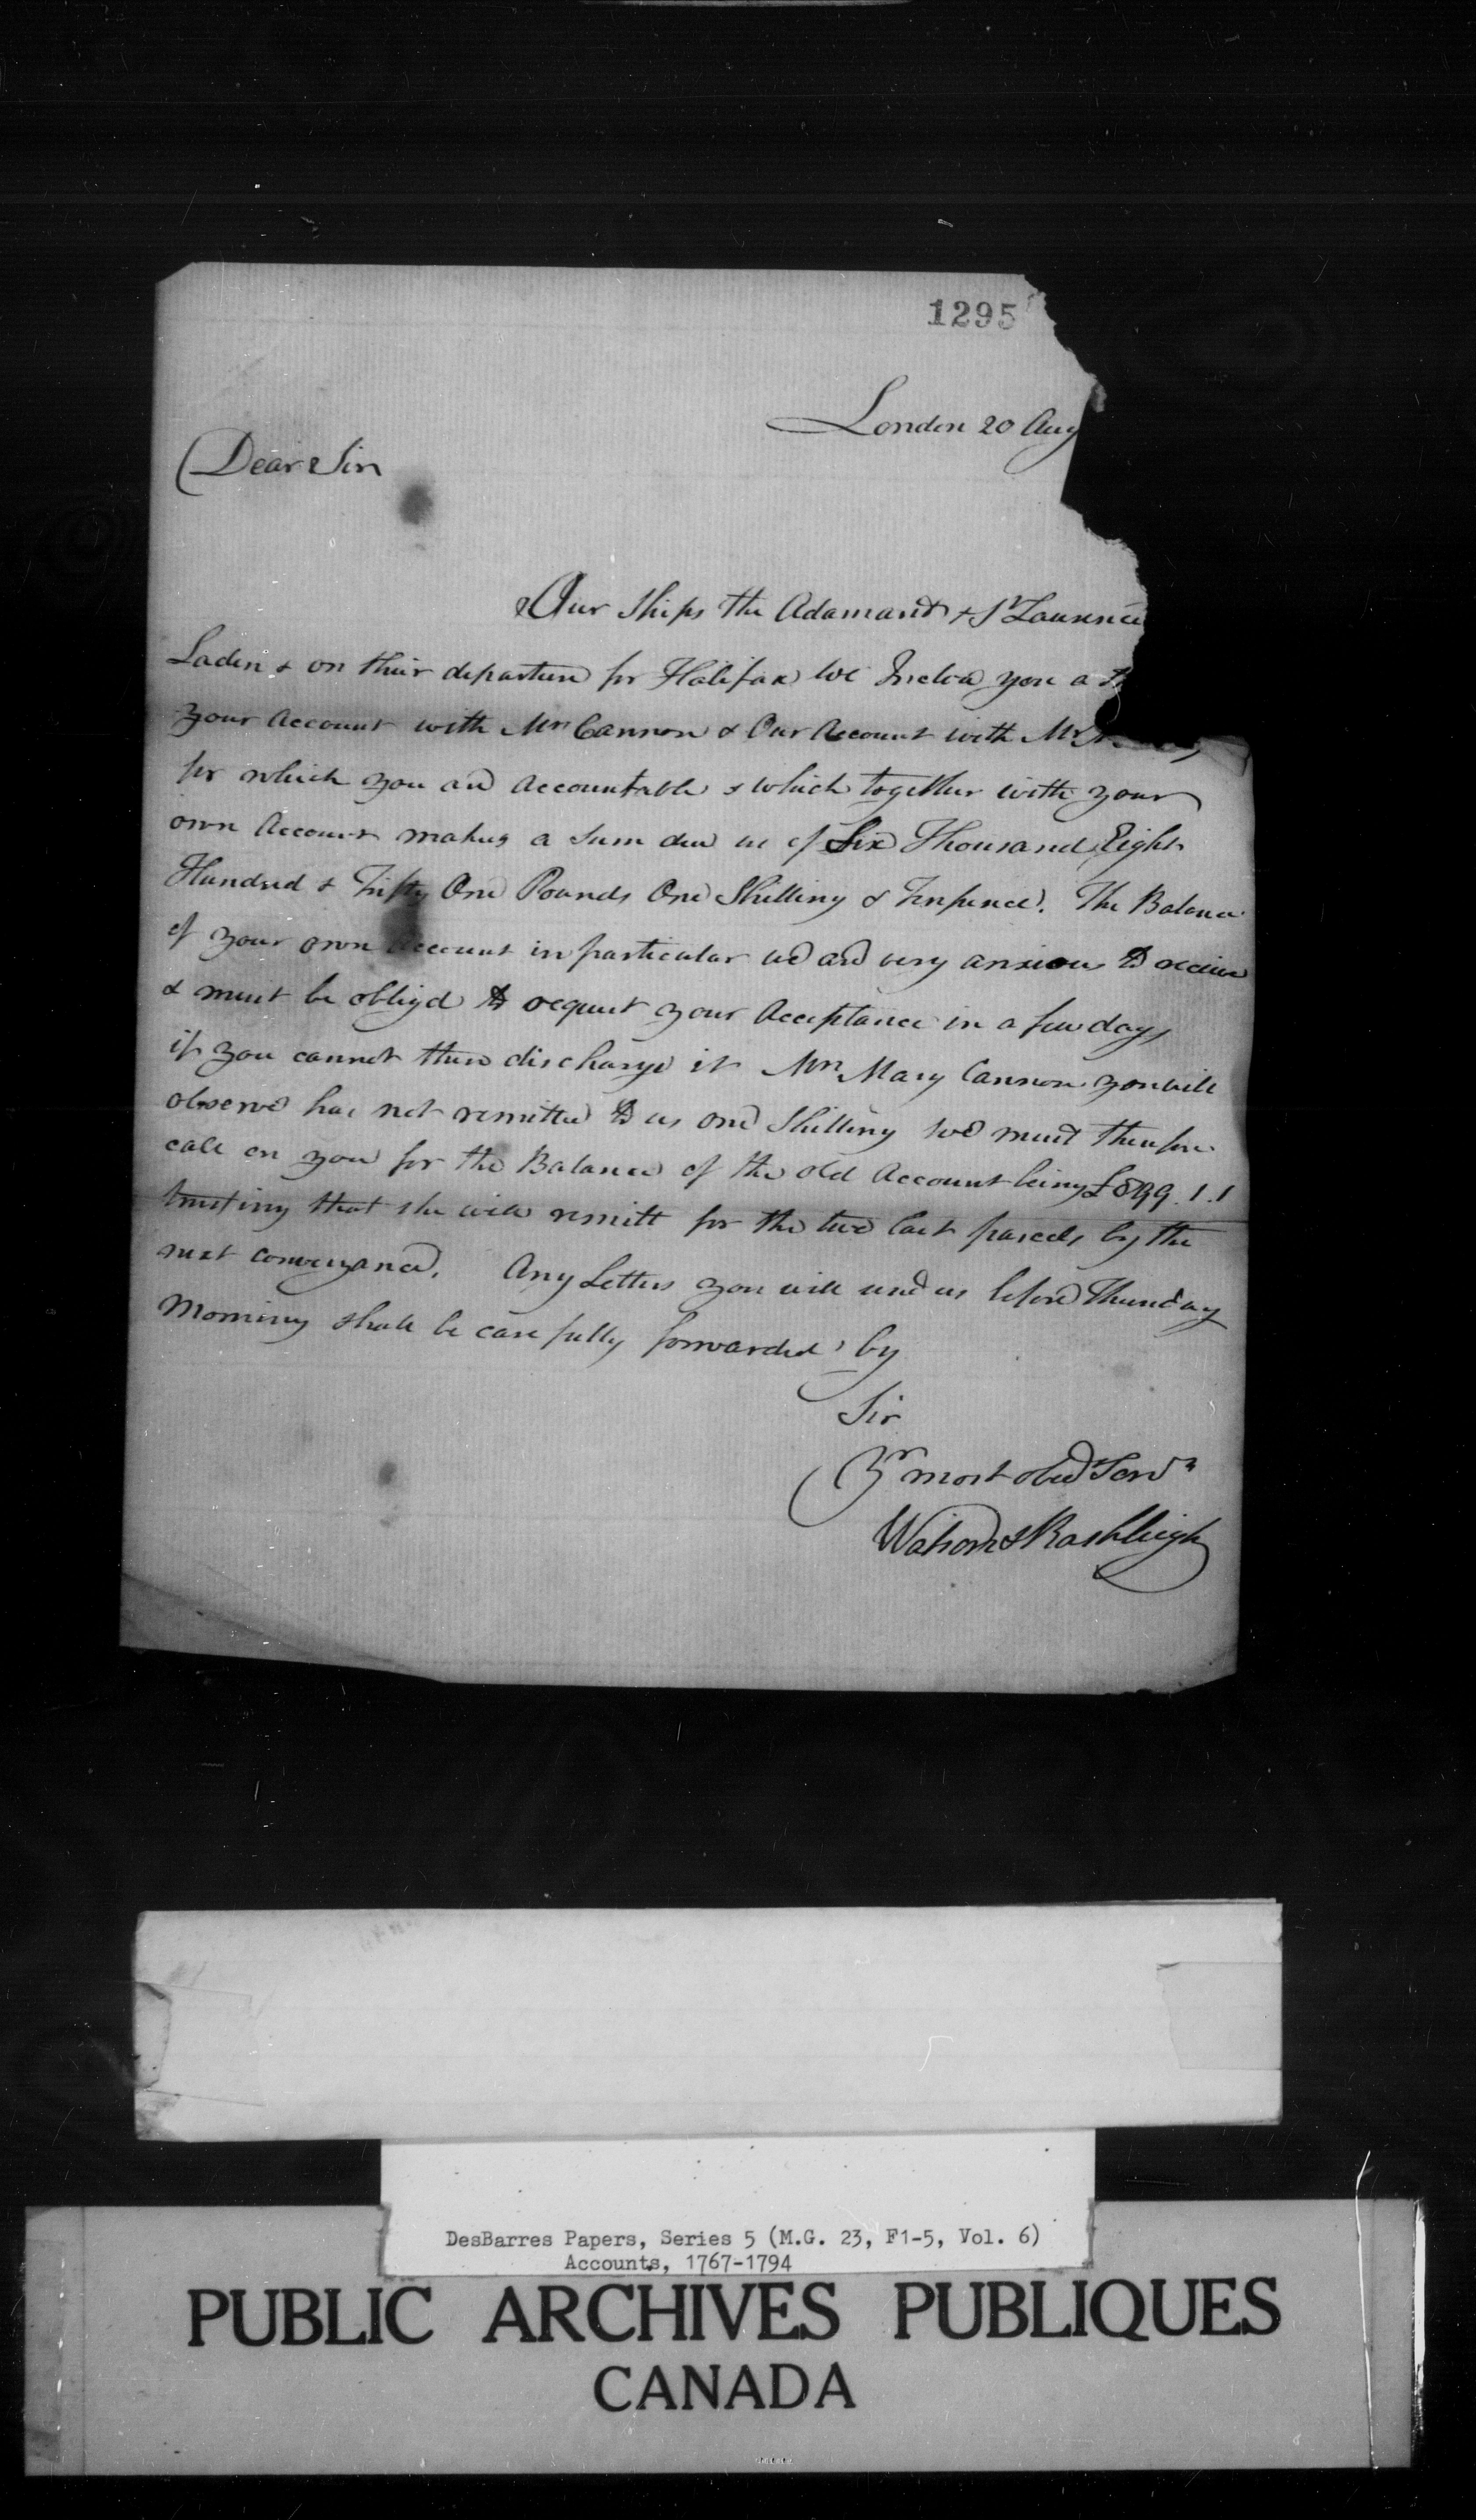 1295
London 20 Aug
Dear Sir
Our Ships the Adamant & St Laurence
Laden & on their departure for Halifax We Inclose you a
your Account with Mrs Cannon & Our Account with Mr
for which you are Accountable & which together with your
own Account makes a Sum due us of Six Thousand Eight
Hundred & Fifty One Pounds One Shilling & Tenpence. The Balance
of your own Account in particular we are very anxious to receive
& must be obligd to request your Acceptance in a few days
if you cannot then discharge it Mrs Mary Cannon you will
observe has not remitted to us one Shilling we must therefore
call on you for the Balance of the old Account being £899.1.1
trusting that she will remitt for the two last parcels by the
next conveyance. Any Letters you will send us before Thursday
Morning shall be carefully forwarded by
Sir
Yr most obed Servts
Watson & Rashleigh
DesBarres Papers, Series 5 (M.G. 23, F1-5, Vol. 6)
Accounts, 1767-1794
PUBLIC ARCHIVES PUBLIQUES
CANADA